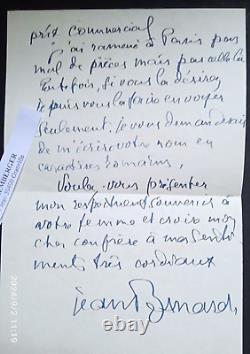 prix commercial
j'ai ramené à Paris pas
mal de pièces mais pas celle-là
Toutefois, si vous la désirez
je puis vous la faire envoyer
seulement, je vous demanderais
de m'écrire votre nom en
caractères romains.
Voulez-vous présenter
mon respectueux souvenir à
votre femme et croire mon
cher confrère à mes senti
ments très cordiaux
Jean Bernard
EMBERGER
2024/9/2 11:19